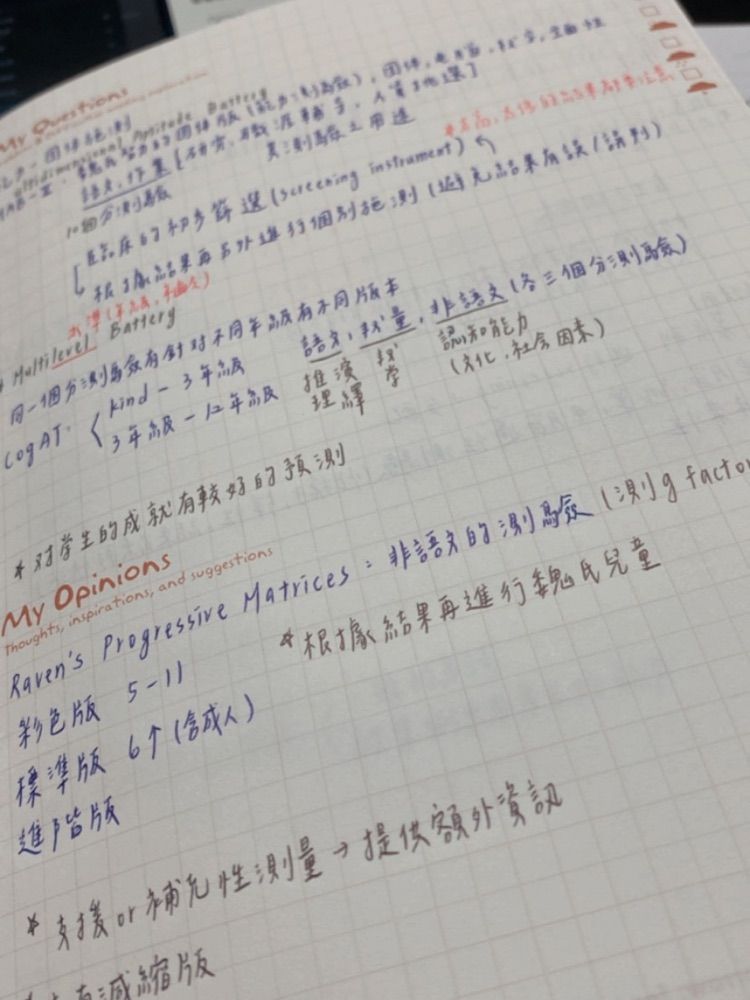 My Questions
能力-團體施測
Multidimensional Aptitude Battery
魏氏智力的團體版(能力測驗), 團體,
語文, 作業 [研究, 職涯輔導, 人資挑選]
10個分測驗
其測驗之用途
臨床的初步篩選 (screening instrument)
根據結果再另外進行個別施測 (避免結果有誤/誤判)
水準(年級, 年齡)
* Multilevel Battery
同一個分測驗有針對不同年級有不同版本
語文, 數量, 非語文(各三個分測驗)
CogAT
kind - 3年級
3年級 - 12年級
推理 演繹
數學
認知能力
(文化, 社會因素)
* 对学生的成就有較好的預測
My Opinions
Thoughts, inspirations, and suggestions
Raven's Progressive Matrices: 非語文的測驗 (測g factor
彩色版 5-11
* 根據結果再進行魏氏兒童
標準版 6↑(含成人)
進階版
* 支援or補充性測量→提供額外資訊
有減縮版